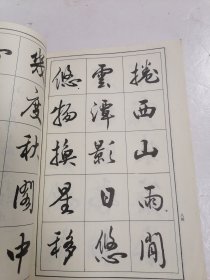 捲西山雨閒
雲潭影日悠
悠物換星移
幾度秋閣中